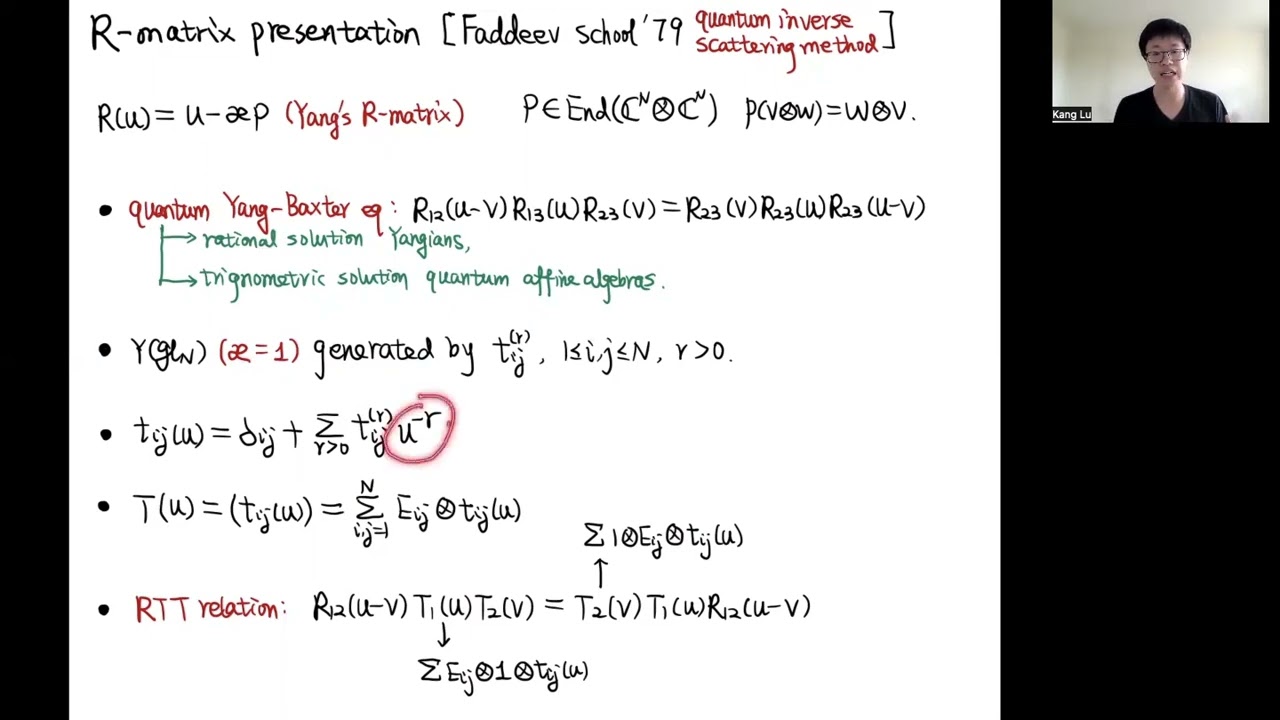 R-matrix presentation [Faddeev school '79 quantum inverse scattering method]
R(u) = u - æP (Yang's R-matrix) P ∈ End(ℂᴺ⊗ℂᴺ) P(v⊗w) = w⊗v.
• quantum Yang-Baxter eq: R₁₂(u-v)R₁₃(u)R₂₃(v) = R₂₃(v)R₂₃(u)R₂₃(u-v)
→ rational solution Yangians,
→ trignometric solution quantum affine algebras.
• Y(glN) (æ = 1) generated by tᵢⱼ⁽ʳ⁾, 1≤i,j≤N, r>0.
• tᵢⱼ(u) = δᵢⱼ + Σ_{r>0} tᵢⱼ⁽ʳ⁾ u⁻ʳ
• T(u) = (tᵢⱼ(u)) = Σ_{i,j=1}^N Eᵢⱼ ⊗ tᵢⱼ(u)
Σ 1⊗Eᵢⱼ⊗tᵢⱼ(u)
↑
• RTT relation: R₁₂(u-v) T₁(u) T₂(v) = T₂(v) T₁(u) R₁₂(u-v)
↓
Σ Eᵢⱼ⊗1⊗tᵢⱼ(u)
Kang Lu